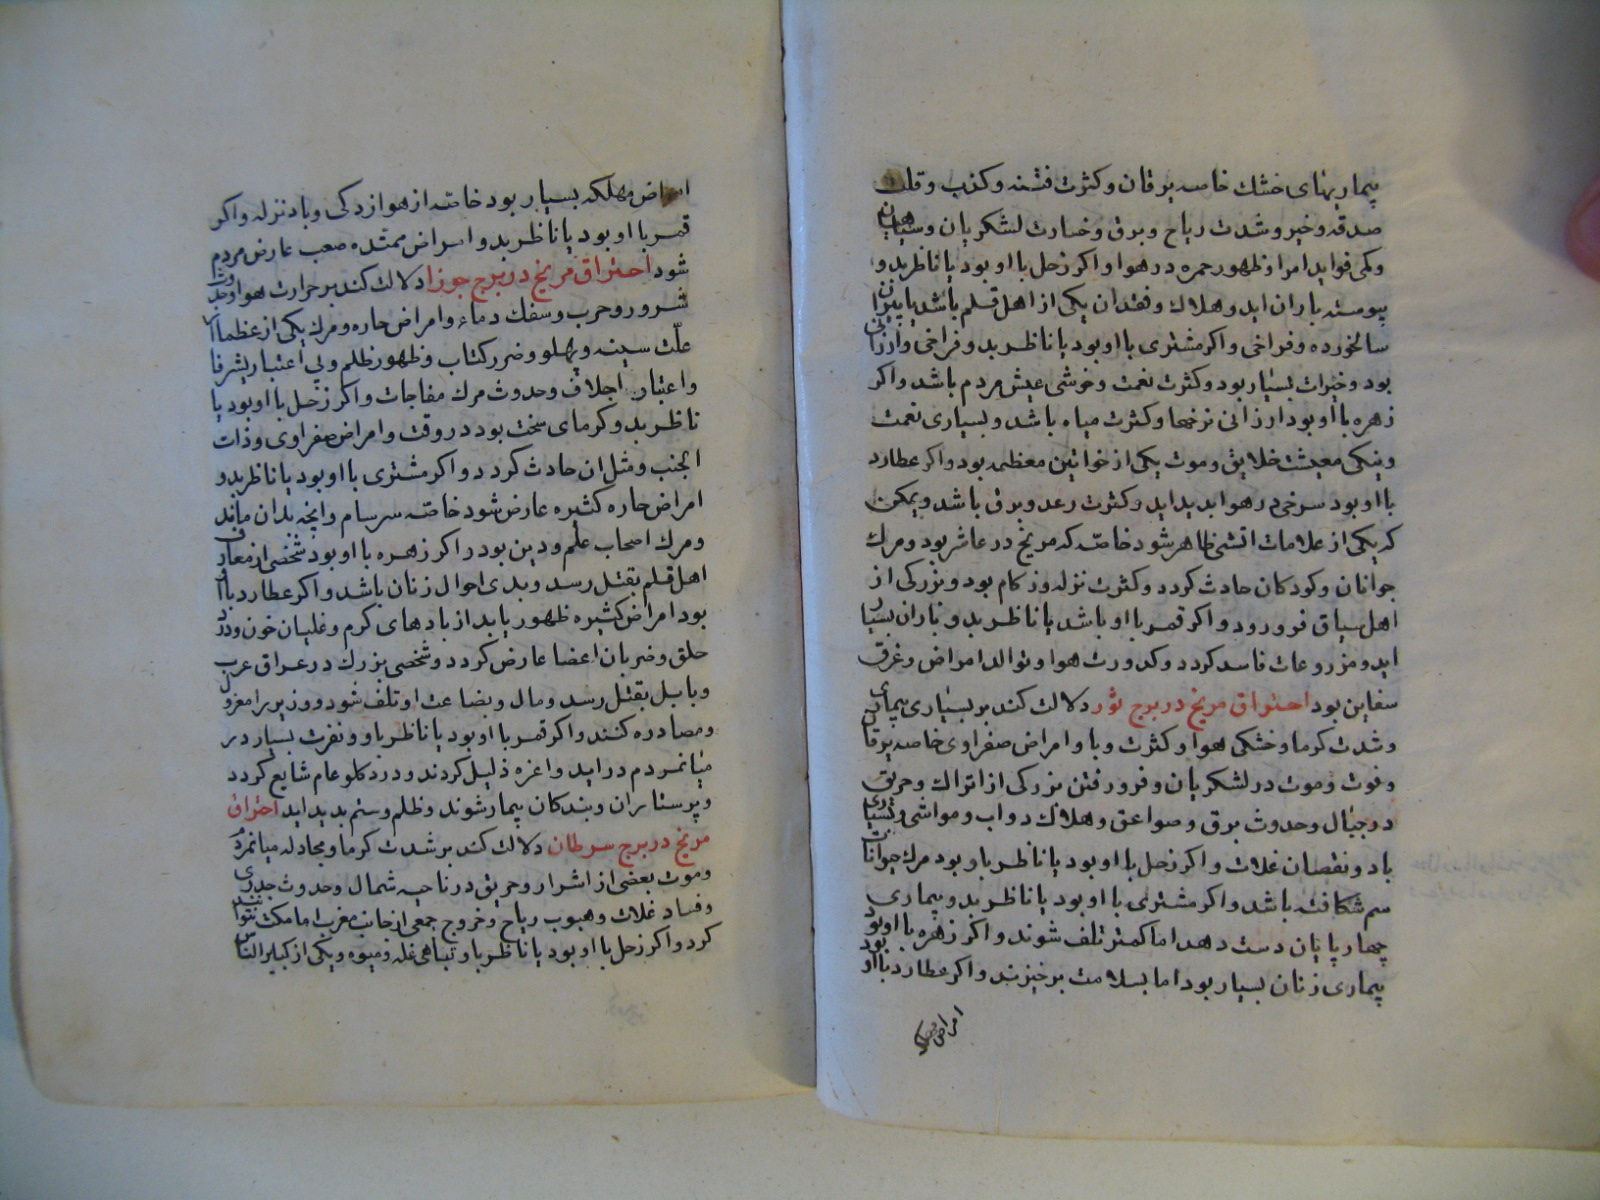 بیماریهای خشك خاصه یرقان وکثرت فتنه وکذب وقلت
صدقه وخیر وشدت ریاح وبرق وخسارت لشکریان وسپاهیان
وکمی فواید امرا وظهور حمره در هوا واکر زحل با او بود یا ناظر بدو
پیوسته باران اید وهلاك وفقدان یکی از اهل قلم باشد یا پیران
سالخورده وفراخی واکر مشتری با او بود یا ناظر بدو فراخی وارزانی
بود وخیرات بسیار بود وکثرت نعمت وخوشی عیش مردم باشد واکر
زهره با او بود ارزانی نرخها وکثرت میاه باشد وبسیاری نعمت
ونیکی معیشت خلایق وموت یکی از خواتین معظمه بود واکر عطارد
با او بود سرخی در هوا پدید اید وکثرت رعد وبرق باشد ویمکن
که یکی از علامات اتشی ظاهر شود خاصه که مریخ در عاشر بود ومرك
جوانان وکودکان حادث کردد وکثرت نزله وزکام بود وبزرکی از
اهل سیاق فرو رود واکر قمر با او باشد یا ناظر بدو باران بسیار
اید ومزروعات فاسد کردد وکدورت هوا وتوالد امراض وغرق
سفاین بود احتراق مریخ در برج ثور دلالت کند بر بسیاری بیماری
وشدت کرما وخشکی هوا وکثرت وبا وامراض صفراوی خاصه یرقان
وفوت وموت در لشکریان وفرو رفتن بزرکی از اتراك وحریق
در جبال وحدوث برق وصواعق وهلاك دواب ومواشی وبسیاری
باد ونقصان غلات واکر زحل با او بود یا ناظر باو بود مرك حیوانات
سم شکافته باشد واکر مشتری با او بود یا ناظر بدو بیماری
چهارپایان دست دهد اما کمتر تلف شوند واکر زهره با او بود
بیماری زنان بسیار بود اما بسلامت برخیزند واکر عطارد با او بود
امراض مهلکه
امراض مهلکه بسیار بود خاصه از هوازدکی وباد نزله واکر
قمر با او بود یا ناظر بدو امراض ممتده صعب عارض مردم
شود احتراق مریخ در برج جوزا دلالت کند بر حرارت هوا وحدوث
شرور وحرب وسفك دماء وامراض حاره ومرك یکی از عظما
علت سینه وپهلو وضرر کتاب وظهور ظلم وبی اعتباری شرفا
واعتبار اجلاف وحدوث مرك مفاجات واکر زحل با او بود یا
ناظر بدو کرمای سخت بود در وقت وامراض صفراوی وذات
الجنب ومثل ان حادث کردد واکر مشتری با او بود یا ناظر بدو
امراض حاره کثیره عارض شود خاصه سرسام وانچه بدان ماند
ومرك اصحاب علم ودین بود واکر زهره با او بود شخصی از معارف
اهل قلم بقتل رسد وبدی احوال زنان باشد واکر عطارد با او
بود امراض کثیره ظهور یابد از بادهای کرم وغلیان خون ودرد
حلق وضربان اعضا عارض کردد وشخصی بزرك در عراق عرب
وبابل بقتل رسد ومال وبضاعت او تلف شود ووزیر را معزول
ومصادره کنند واکر قمر با او بود یا ناظر باو ونفرت بسیار در
میانمردم دراید واعزه ذلیل کردند ودرد کلو عام شایع کردد
وپرستاران وبندکان بیمار شوند وظلم وستم پدید اید احتراق
مریخ در برج سرطان دلالت کند بر شدت کرما ومجادله میانمردم
وموت بعضی از اشرار وحریق در ناحیه شمال وحدوث جدری
وفساد غلات وهبوب ریاح وخروج جمعی از جانب مغرب اما مکث نتوانند
کرد واکر زحل با او بود یا ناظر باو تباهی غله ومیوه ویکی از کبایر الناس